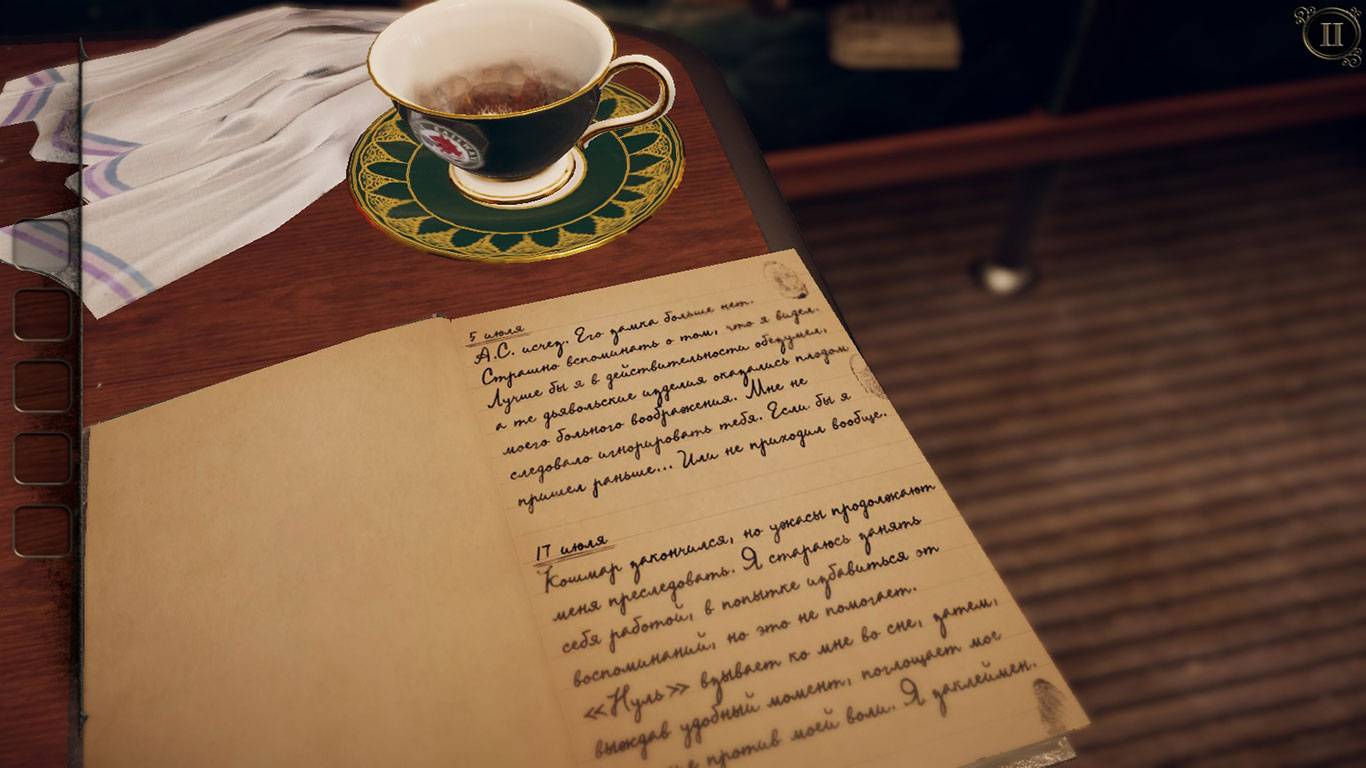 5 июля
А.С. исчез. Его замка больше нет.
Страшно вспоминать о том, что я видел.
Лучше бы я в действительности обезумел,
а те дьявольские изделия оказались плодом
моего больного воображения. Мне не
следовало игнорировать тебя. Если бы я
пришел раньше... Или не приходил вообще.
17 июля
Кошмар закончился, но ужасы продолжают
меня преследовать. Я стараюсь занять
себя работой, в попытке избавиться от
воспоминаний, но это не помогает.
«Нуль» взывает ко мне во сне, затем,
выждав удобный момент, поглощает мое
против моей воли. Я заклеймен.